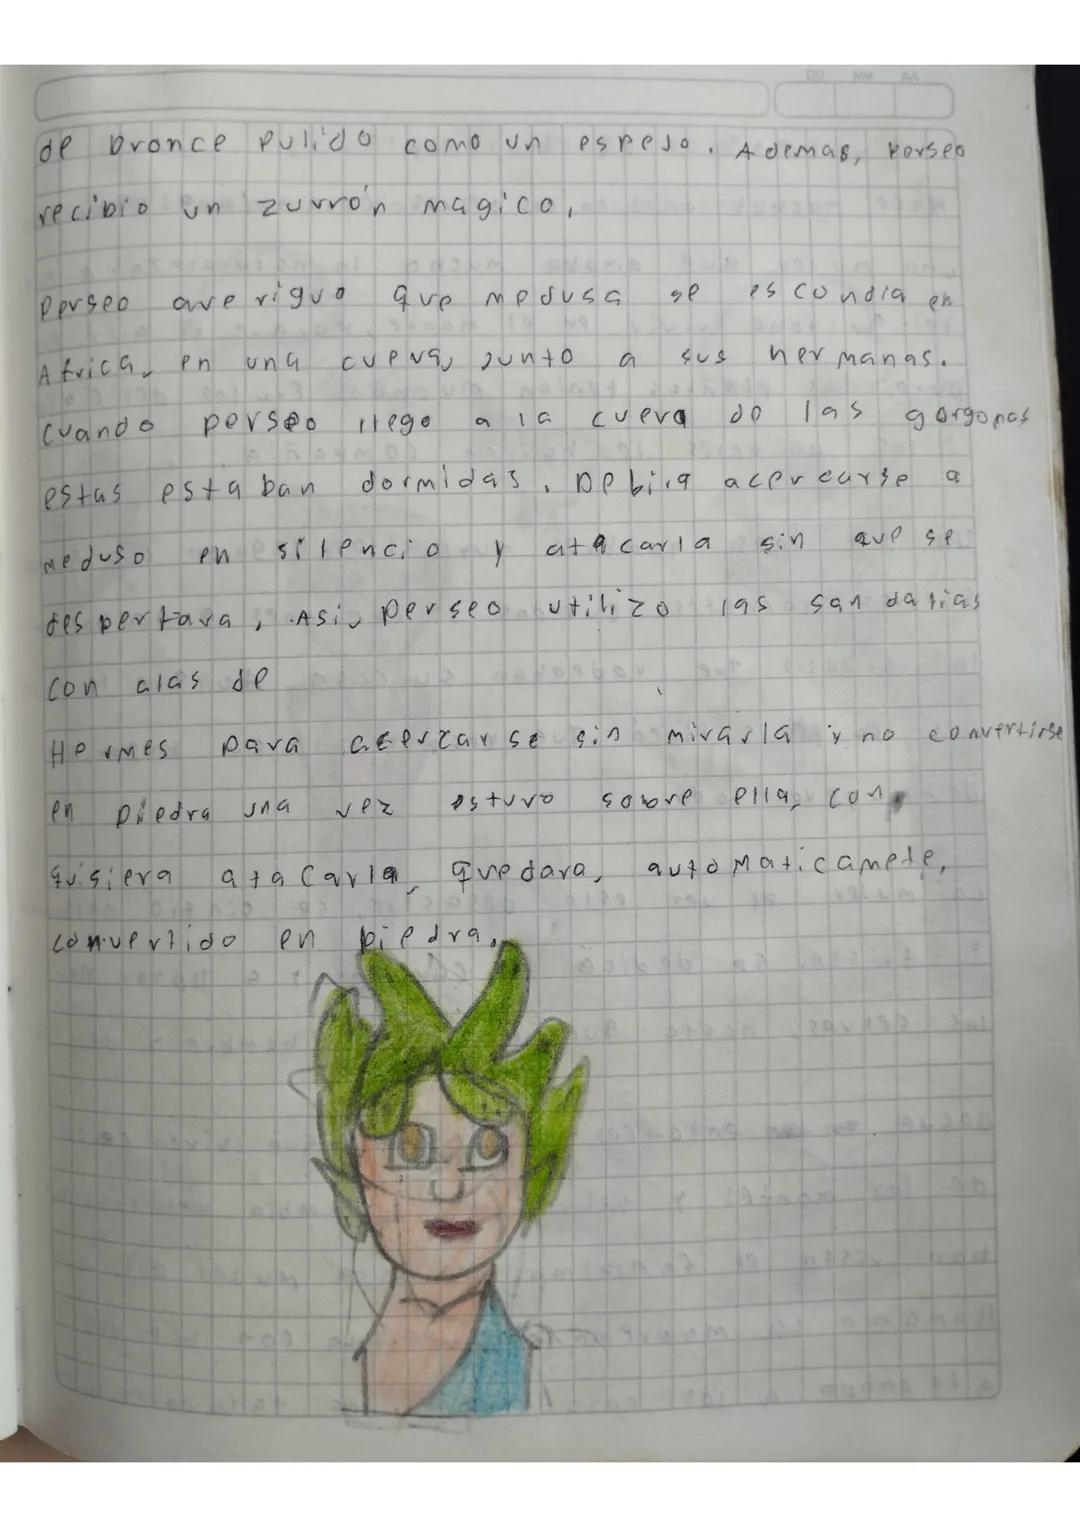 DD MM AA
de bronce pulido como un espejo. Ademas, Perseo
recibio un zurrón magico,
Perseo averiguo que medusa se escondia en
Africa, en una cueva, junto a sus hermanas.
Cuando perseo llego a la cueva de las gorgonas
estas estaban dormidas. Debiia acercarse a
meduso en silencio y atacarla sin que se
despertara, Asi, perseo utilizo las sandalias
con alas de
Hermes para acercarse sin mirarla y no convertirse
en piedra una vez estuvo sobre ella, con
quisiera atacarla, quedara, automaticamete,
convertido en piedra.